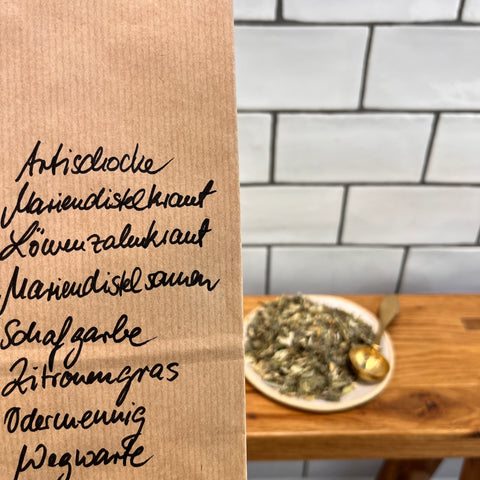 Artischocke
Mariendistelkraut
Löwenzahnkraut
Mariendistelsamen
Schafgarbe
Zitronengras
Odermennig
Wegwarte